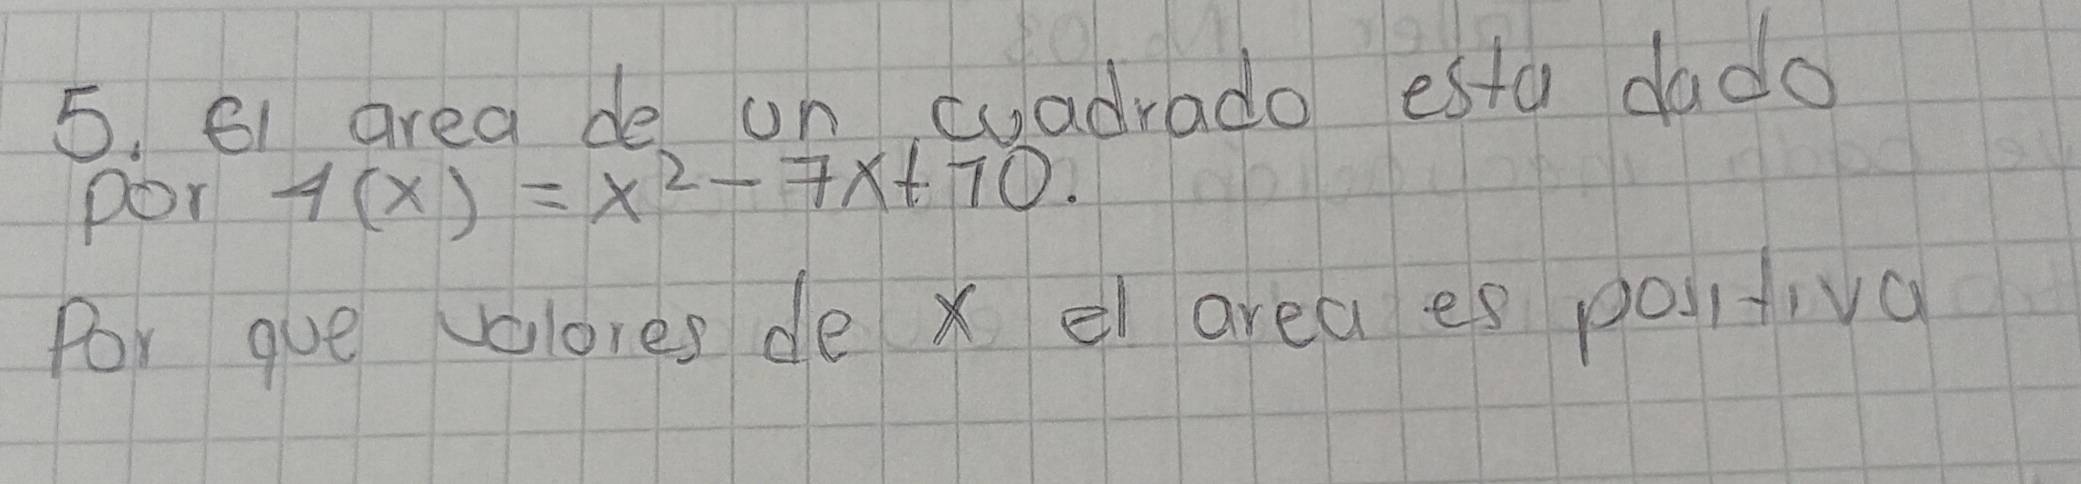 5. El area de un cuadrado esta dado
por A(x) = x² - 7x + 10.
Por que valores de x el area es positiva